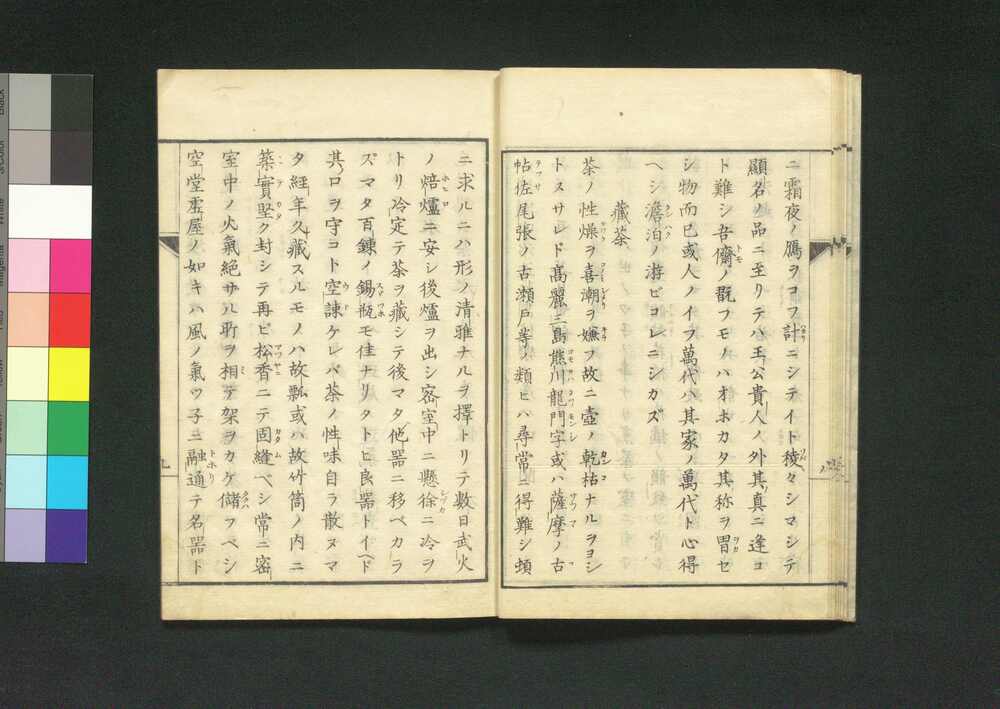 ニ霜夜ノ鴈ヲコフ計ニシテイト稜々シマシテ
顯名ノ品ニ至リテハ王公貴人ノ外其真ニ逢コ
ト難シ吾儕ノ翫フモノハオホカタ其称ヲ冒セ
シ物而已或人ノイフ萬代ハ其家ノ萬代ト心得
ヘシ澹泊ノ游ビコレニシカズ
藏茶
茶ノ性燥ヲ喜潮ヲ嫌フ故ニ壺ノ乾枯ナルヲヨシ
トスサレド髙麗三島熊川龍門字或ハ薩摩ノ古
帖佐尾張ノ古瀬戸等ノ類ヒハ尋常ニ得難シ頃
ニ求ルニハ形ノ清雅ナルヲ擇トリテ數日武火
ノ焙爐ニ安シ後爐ヲ出シ密室中ニ懸徐ニ冷ヲ
トリ冷定テ茶ヲ藏シテ後マタ他器ニ移ベカラ
ズマタ百錬ノ錫瓶モ佳ナリタトヒ良器トイヘド
其口ヲ守コト空踈ケレバ茶ノ性味自ラ散ヌマ
タ經年久藏スルモノハ故瓢或ハ故竹筒ノ内ニ
築實堅ク封シテ再ビ松香ニテ固縫ベシ常ニ密
室中ノ火氣絶ザル所ヲ相テ架ヲカケ儲フベシ
空堂虚屋ノ如キハ風ノ氣ツ子ニ融通テ名器ト
九